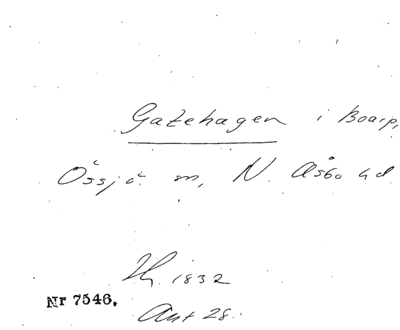 Gatehagen i Boarp,
Össjö sn, N. Åsbo hd
Th. 1832
Nr 7546.
Ant 28.